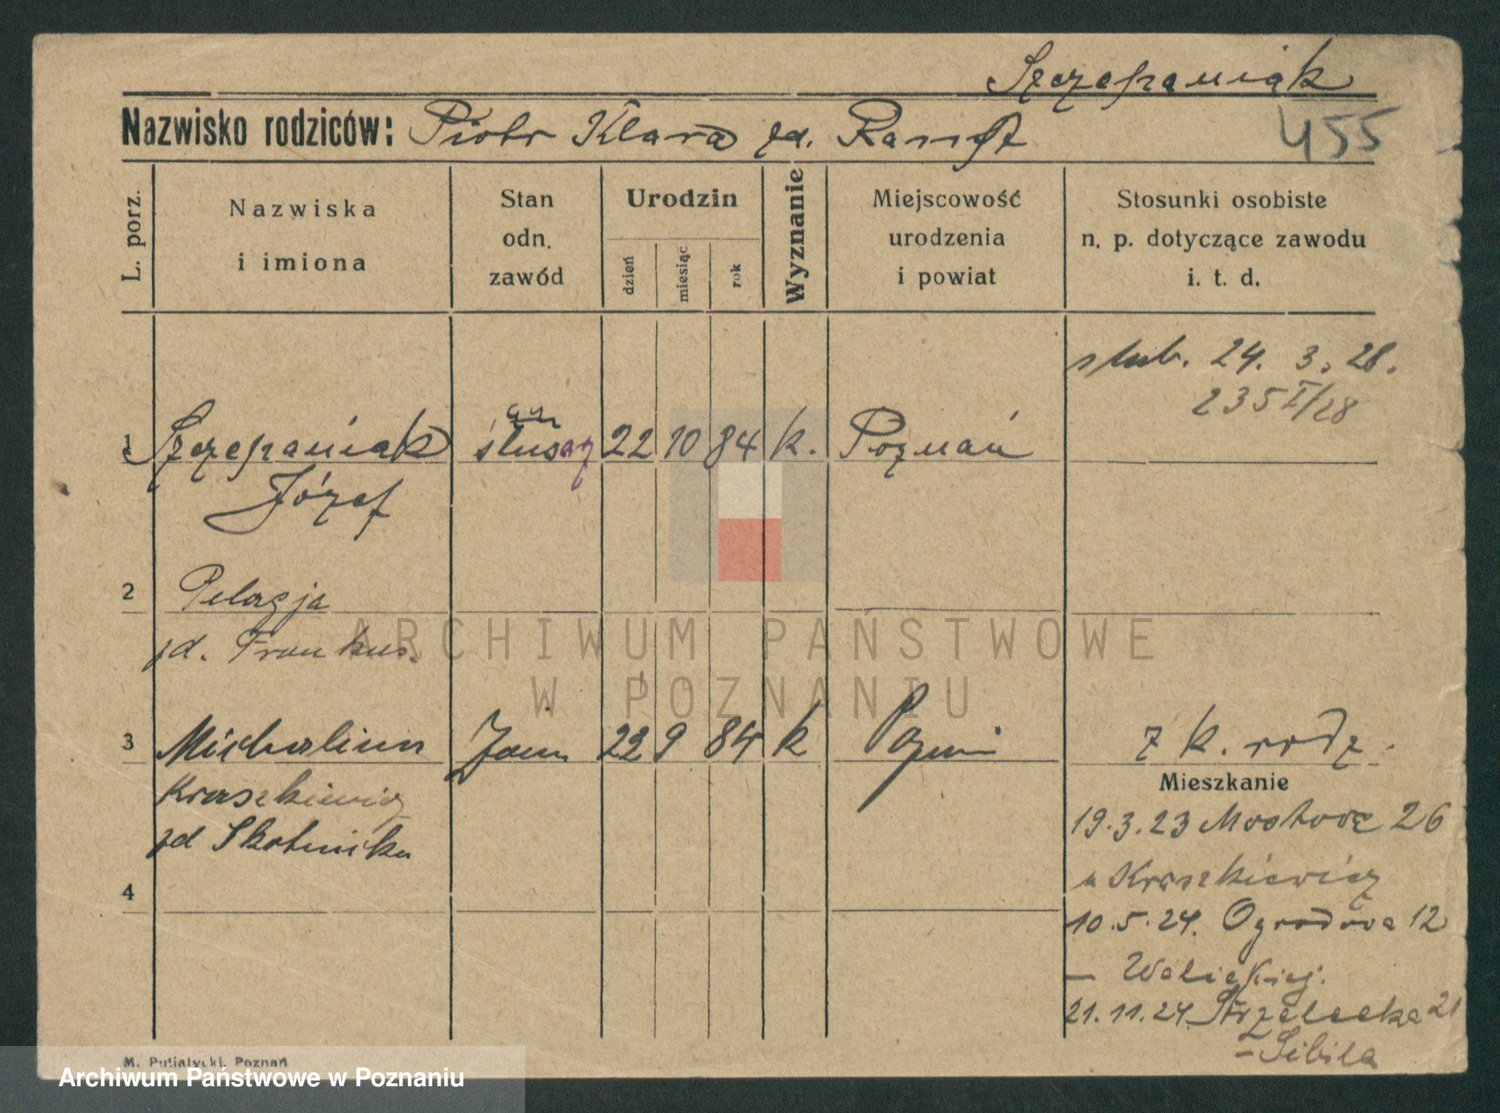 Szczepaniak
Nazwisko rodziców: Piotr Klara zd.
455
L. porz.
Nazwiska
i imiona
Stan
odn.
zawód
Urodzin
dzień
miesiąc
rok
Wyznanie
Miejscowość
urodzenia
i powiat
Stosunki osobiste
n. p. dotyczące zawodu
i. t. d.
ślub. 24. 3. 28.
235 I/28
1 Szczepaniak ślusarz 22 10 84 k. Poznań
Józef
2 Pelagja
zd.
3 Michalina 22 9 84 k z k. rodz.
Kraszkiewicz
zd Skotnicka
4
Mieszkanie
19.3.23 Mostowa 26
u Kraszkiewicz
10.5.24. Ogrodowa 12
21.11.24 Strzelecka 21
- Sibila
M. Putiatycki, Poznań
ARCHIWUM PAŃSTWOWE
W POZNANIU
Archiwum Państwowe w Poznaniu